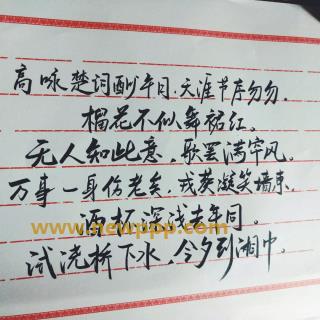 高咏楚词酬午日.天涯节序匆匆.
榴花不似舞裙红.
无人知此意,歌罢满帘风.
万事一身伤老矣,戎葵凝笑墙东.
酒杯深浅去年同.
www.newppp.com
试浇桥下水,今夕到湘中.